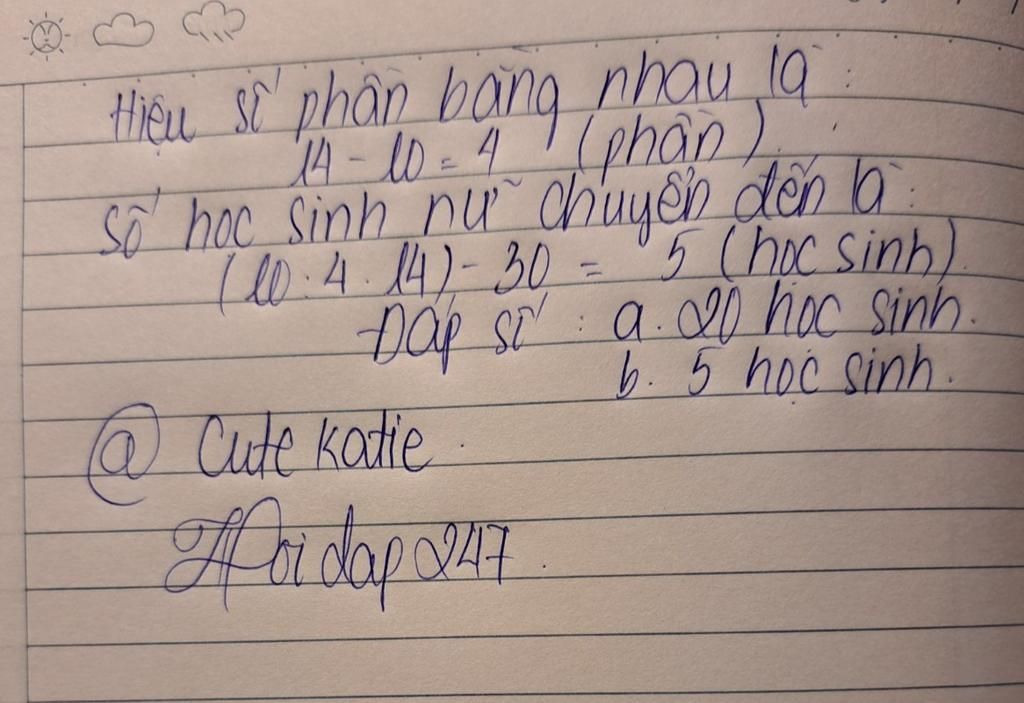 Hiệu số phần bằng nhau là :
14 - 10 = 4 (phần)
Số học sinh nữ chuyển đến là :
(10 : 4 . 14) - 30 = 5 (học sinh)
Đáp số : a. 20 học sinh.
b. 5 học sinh.
@ Cute Katie .
Hoidap247.